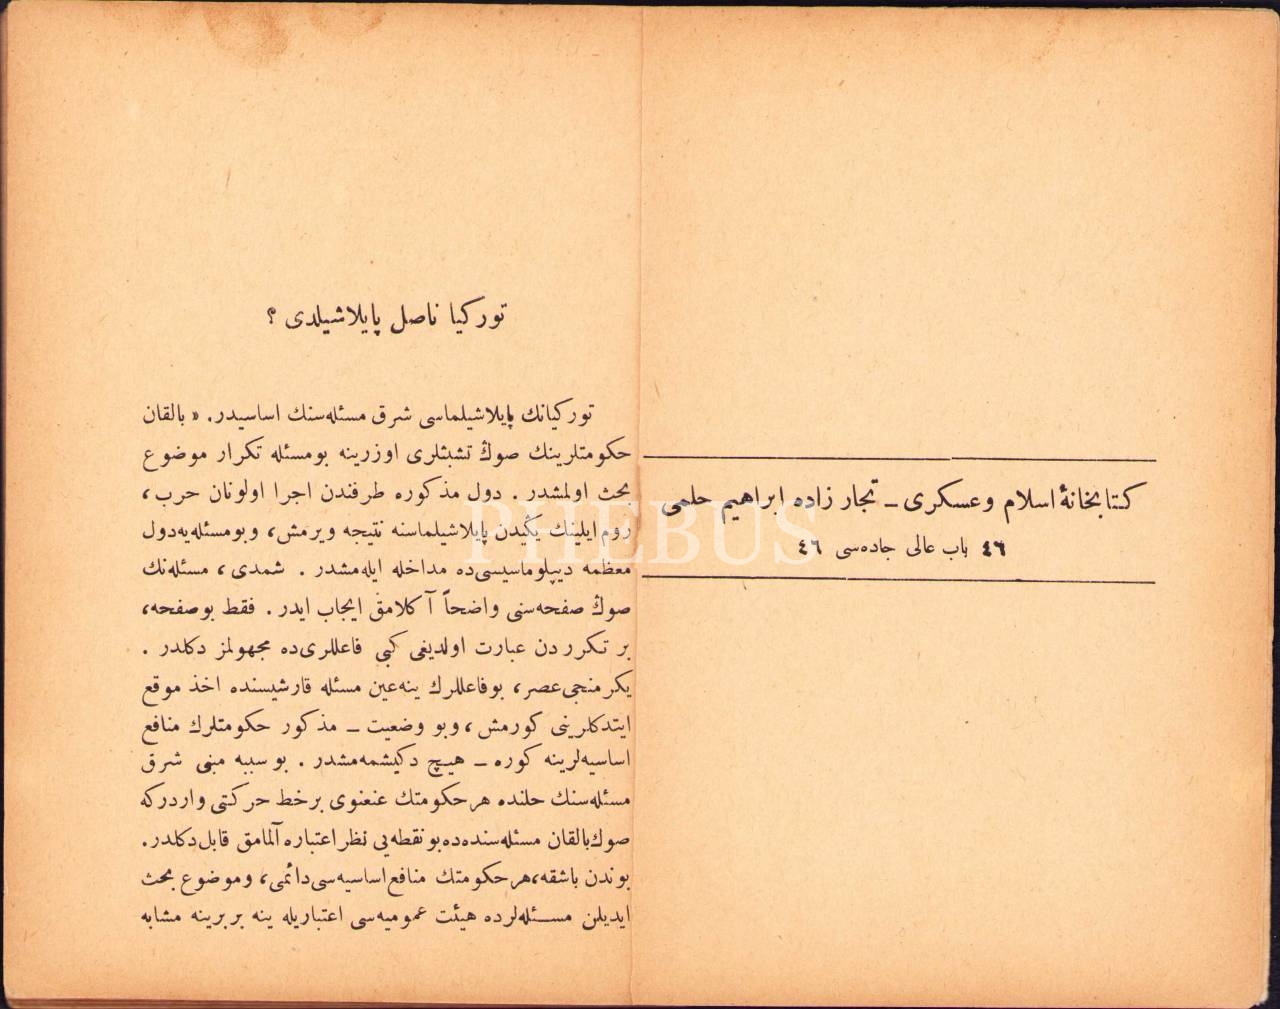 كتابخانهٔ اسلام و عسكرى ـ تجار زاده ابراهيم حلمى
٤٦ باب عالى جاده‌سى ٤٦
توركيا ناصل پايلاشيلدى ؟
توركيانك پايلاشيلماسى شرق مسئله‌سنك اساسيدر. « بالقان
حكومتلرينك صوڭ تشبثلرى اوزرينه بومسئله تكرار موضوع
بحث اولمشدر . دول مذكوره طرفندن اجرا اولونان حرب،
روم ايلينك يڭيدن پايلاشيلماسنه نتيجه ويرمش، وبومسئله‌يه‌دول
معظمه ديپلوماسيسى‌ده مداخله ايله‌مشدر . شمدى، مسئله‌نك
صوڭ صفحه‌سنى واضحاً آكلامق ايجاب ايدر . فقط بوصفحه،
بر تكرردن عبارت اولديغى كبى فاعللرى‌ده مجهولمز دكلدر .
يكرمنجى‌عصر، بوفاعللرك ينه‌عين مسئله قارشيسنده اخذ موقع
ايتدكلرينى كورمش، وبو وضعيت ـ مذكور حكومتلرك منافع
اساسيه‌لرينه كوره ـ هيچ دكيشمه‌مشدر . بوسببه مبنى شرق
مسئله‌سنك حلنده هرحكومتك عنعنوى برخط حركتى واردركه
صوك‌بالقان مسئله‌سنده‌ده‌بونقطه‌يى نظراعتباره آلمامق قابل‌دكلدر.
بوندن باشقه،هرحكومتك منافع‌اساسيه‌سى‌دائمى، وموضوع بحث
ايديلن مسئله‌لرده هيئت عموميه‌سى اعتباريله ينه بربرينه مشابه
PHEBUS